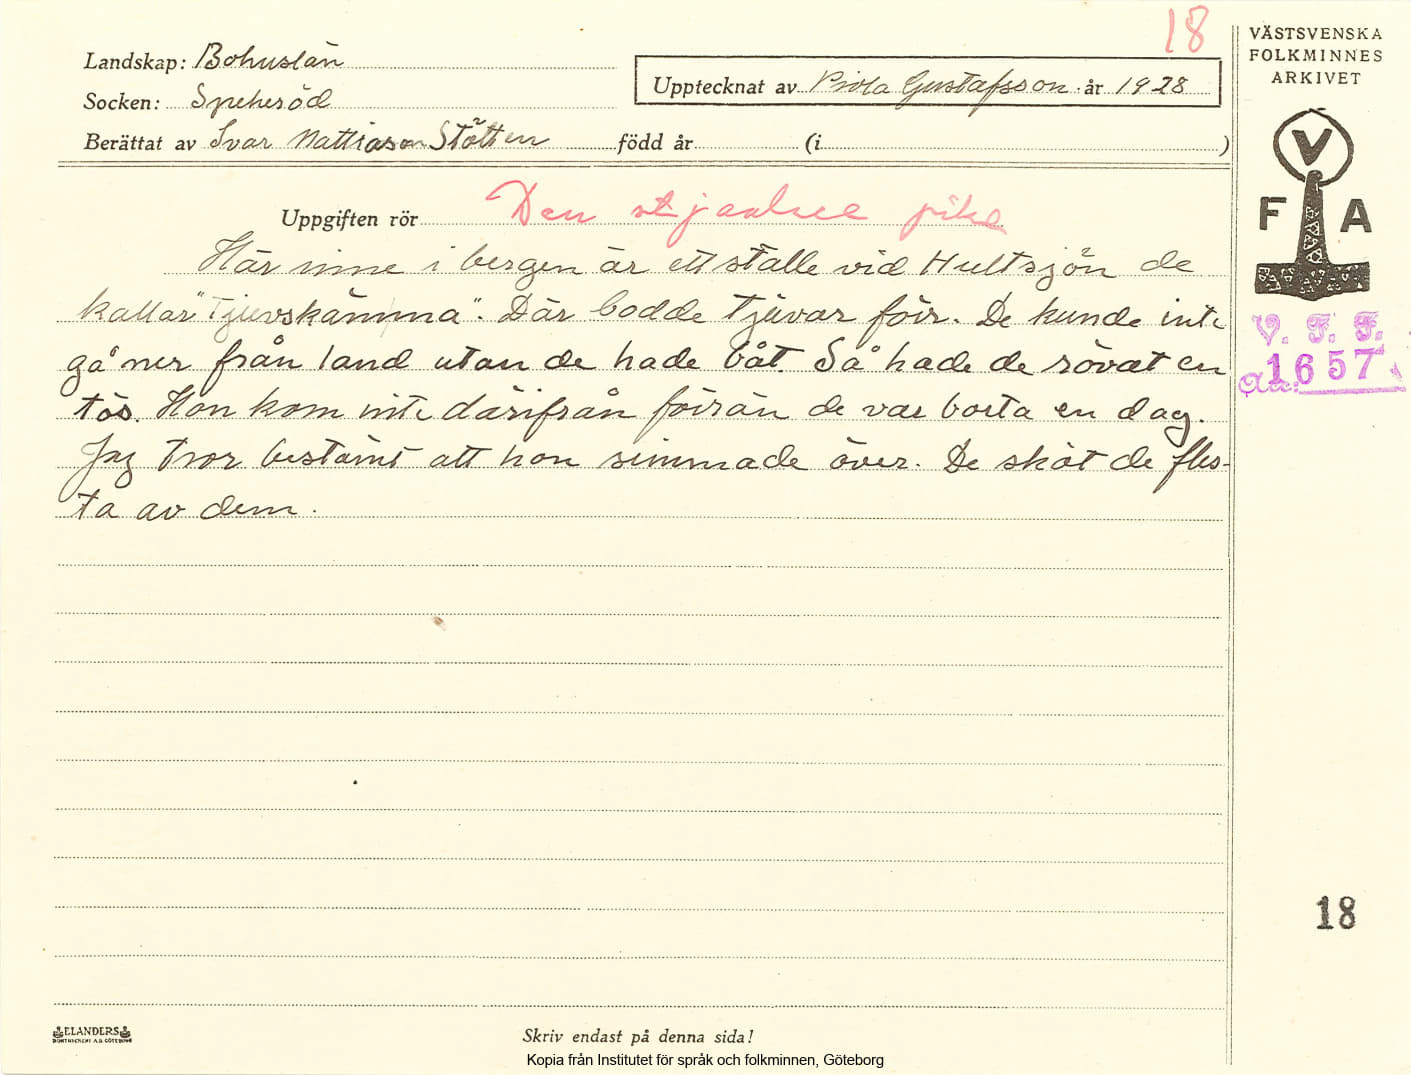 18
VÄSTSVENSKA
FOLKMINNES
ARKIVET
Landskap: Bohuslän
Upptecknat av Gustafsson år 1928
Socken: Spekeröd
Berättat av Ivar Mattiasson född år (i )
V
F A
Uppgiften rör Den
Här inne i bergen är ett ställe vid Hultsjön de
kallar "Tjuvskämma". Där bodde tjuvar förr. De kunde inte
gå ner från land utan de hade båt. Så hade de rövat en
tös. Hon kom inte därifrån förrän de var borta en dag.
Jag tror bestämt att hon simmade över. De sköt de fles-
ta av dem.
V. F. F.
1657
18
ELANDERS
Skriv endast på denna sida!
Kopia från Institutet för språk och folkminnen, Göteborg